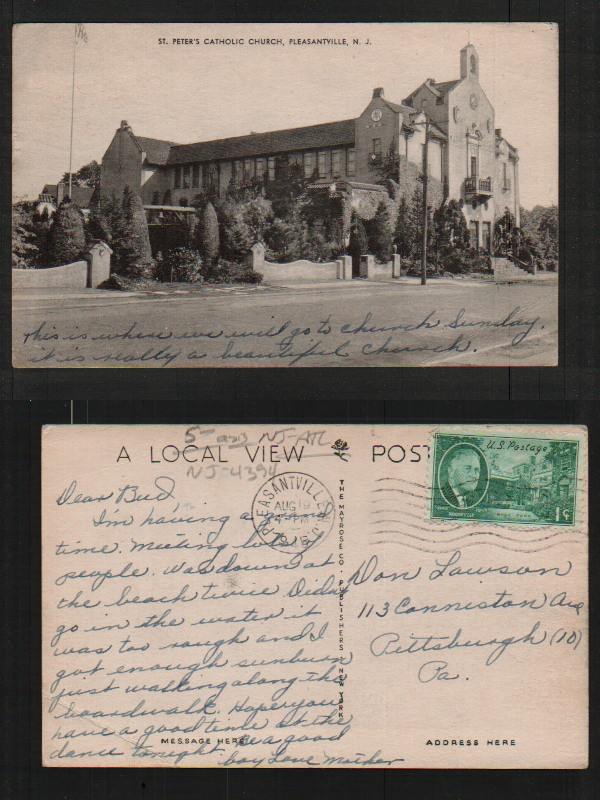 ST. PETER'S CATHOLIC CHURCH, PLEASANTVILLE, N. J.
This is where we will go to church Sunday.
it is really a beautiful church.
5- NJ-ATL
NJ-4394
A LOCAL VIEW POST
U.S. Postage
1¢
PLEASANTVILLE N.J.
AUG 19
PM
Dear Bud
I'm having a grand
time. Meeting lots
people. Was down at
the beach twice Didn't
go in the water it
was too rough and I
got enough sunburn
just walking along the
boardwalk. Hope you
have a good time at the
dance tonight. Be a good
boy Love Mother
MESSAGE HERE
THE MAYROSE CO. PUBLISHERS NEW YORK
Don Lawson
113 Conniston Ave
Pittsburgh (10)
Pa.
ADDRESS HERE